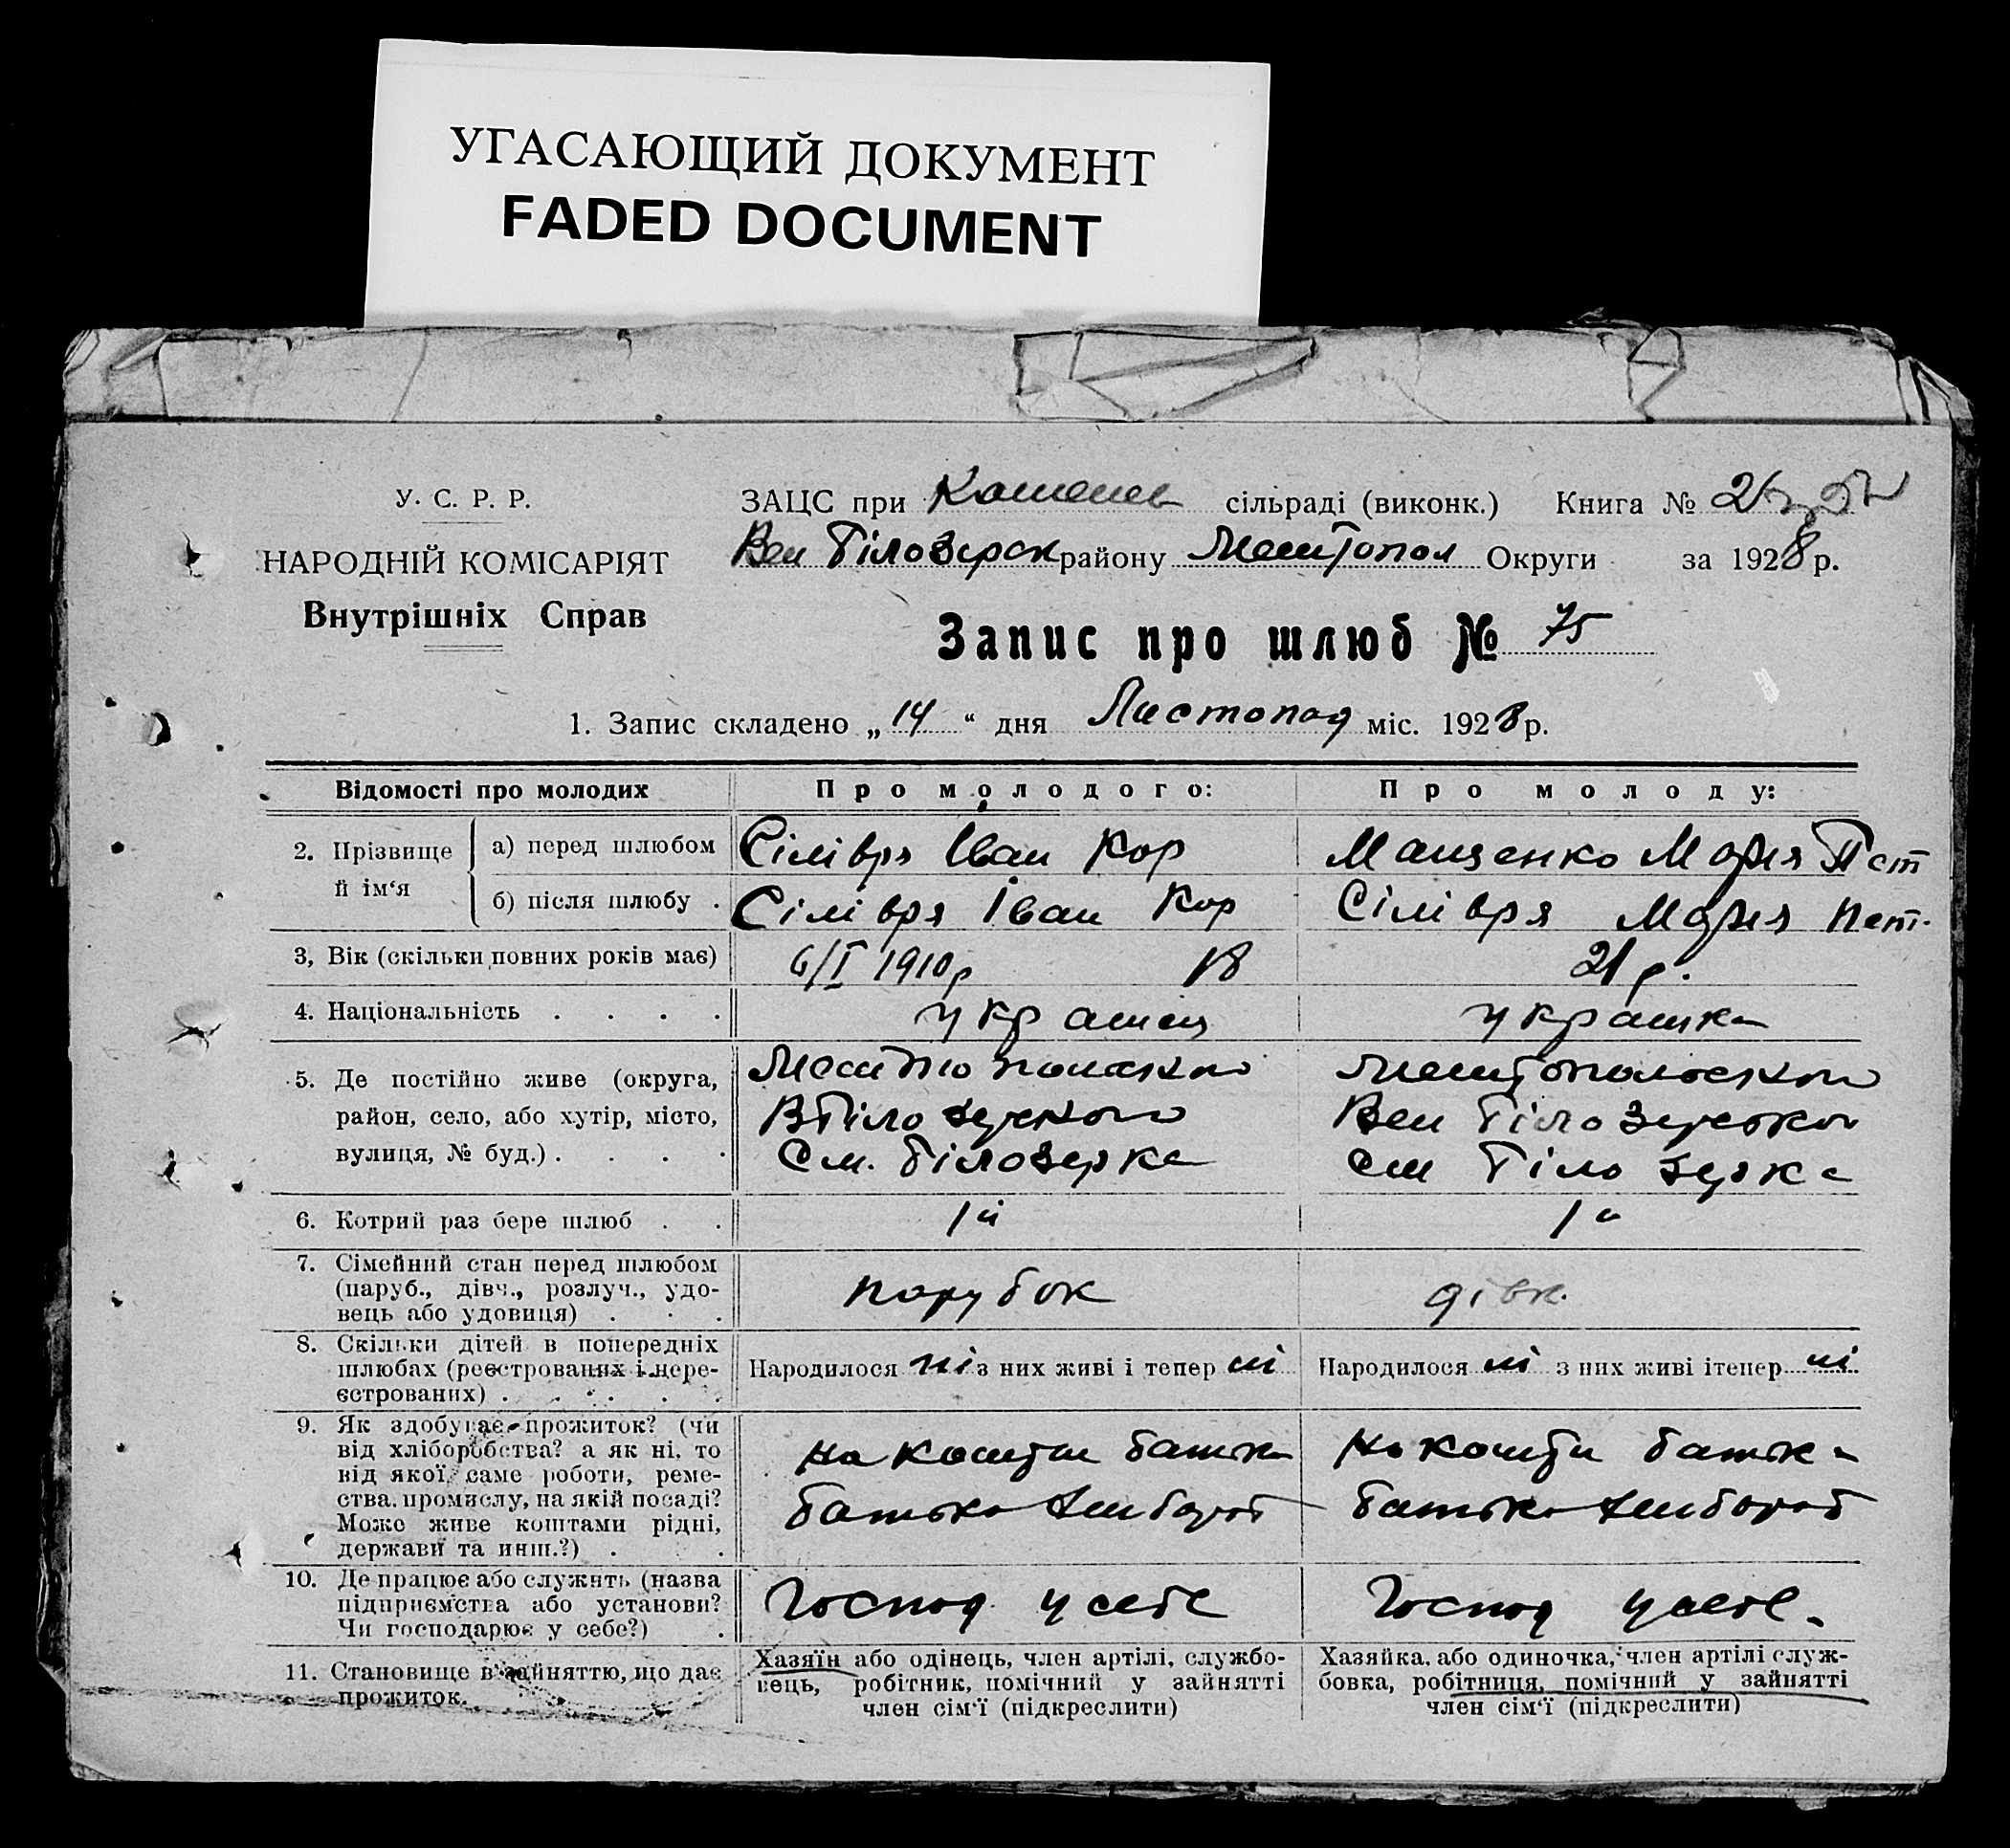 УГАСАЮЩИЙ ДОКУМЕНТ
FADED DOCUMENT
У. С. Р. Р.
НАРОДНІЙ КОМІСАРІЯТ
Внутрішніх Справ
ЗАЦС при сільраді (виконк.) Книга № 2
Вел Білозерск району Мелітопол Округи за 1928 р.
Запис про шлюб № 75
1. Запис складено „ 14 “ дня Листопад міс. 1928 р.
Відомості про молодих
Про молодого:
Про молоду:
2. Прізвище й ім‘я
а) перед шлюбом
Сілівря Іван Кор
Мащенко Мария Пет
б) після шлюбу .
Сілівря Іван Кор
Сілівря Мария Пет.
3, Вік (скільки повних років має)
6/I 1910 р 18
21 р.
4. Національність . . . .
українец
українка
5. Де постійно живе (округа,
район, село, або хутір, місто,
вулиця, № буд.) . . . .
Мелітопольско
В Білозерсково
См. Білозерка
Мелітопольсково
Вел Білозерсково
См Білозерка
6. Котрий раз бере шлюб . .
1й
1й
7. Сімейний стан перед шлюбом
(паруб., дівч., розлуч., удо-
вець або удовиця) . . .
парубок
дівк.
8. Скільки дітей в попередніх
шлюбах (реєстрованих і нере-
єстрованих) . . . . .
Народилося ні з них живі і тепер ні
Народилося ні з них живі ітепер ні
9. Як здобуває прожиток? (чи
від хліборобства? а як ні, то
від якої саме роботи, реме-
ства, промислу, на якій посаді?
Може живе коштами рідні,
держави та инш.?) . .
на кошти батька
батько хлібороб
на кошти батька
батько хлібороб
10. Де працює або служить (назва
підприємства або установи?
Чи господарює у себе?) .
Господ у себе
Господ у себе.
11. Становище в зайняттю, що дає
прожиток.
Хазяїн або одінець, член артілі, службо-
вець, робітник, помічний у зайнятті
член сім‘ї (підкреслити)
Хазяйка, або одиночка, член артілі служ-
бовка, робітниця, помічний у зайнятті
член сім‘ї (підкреслити)